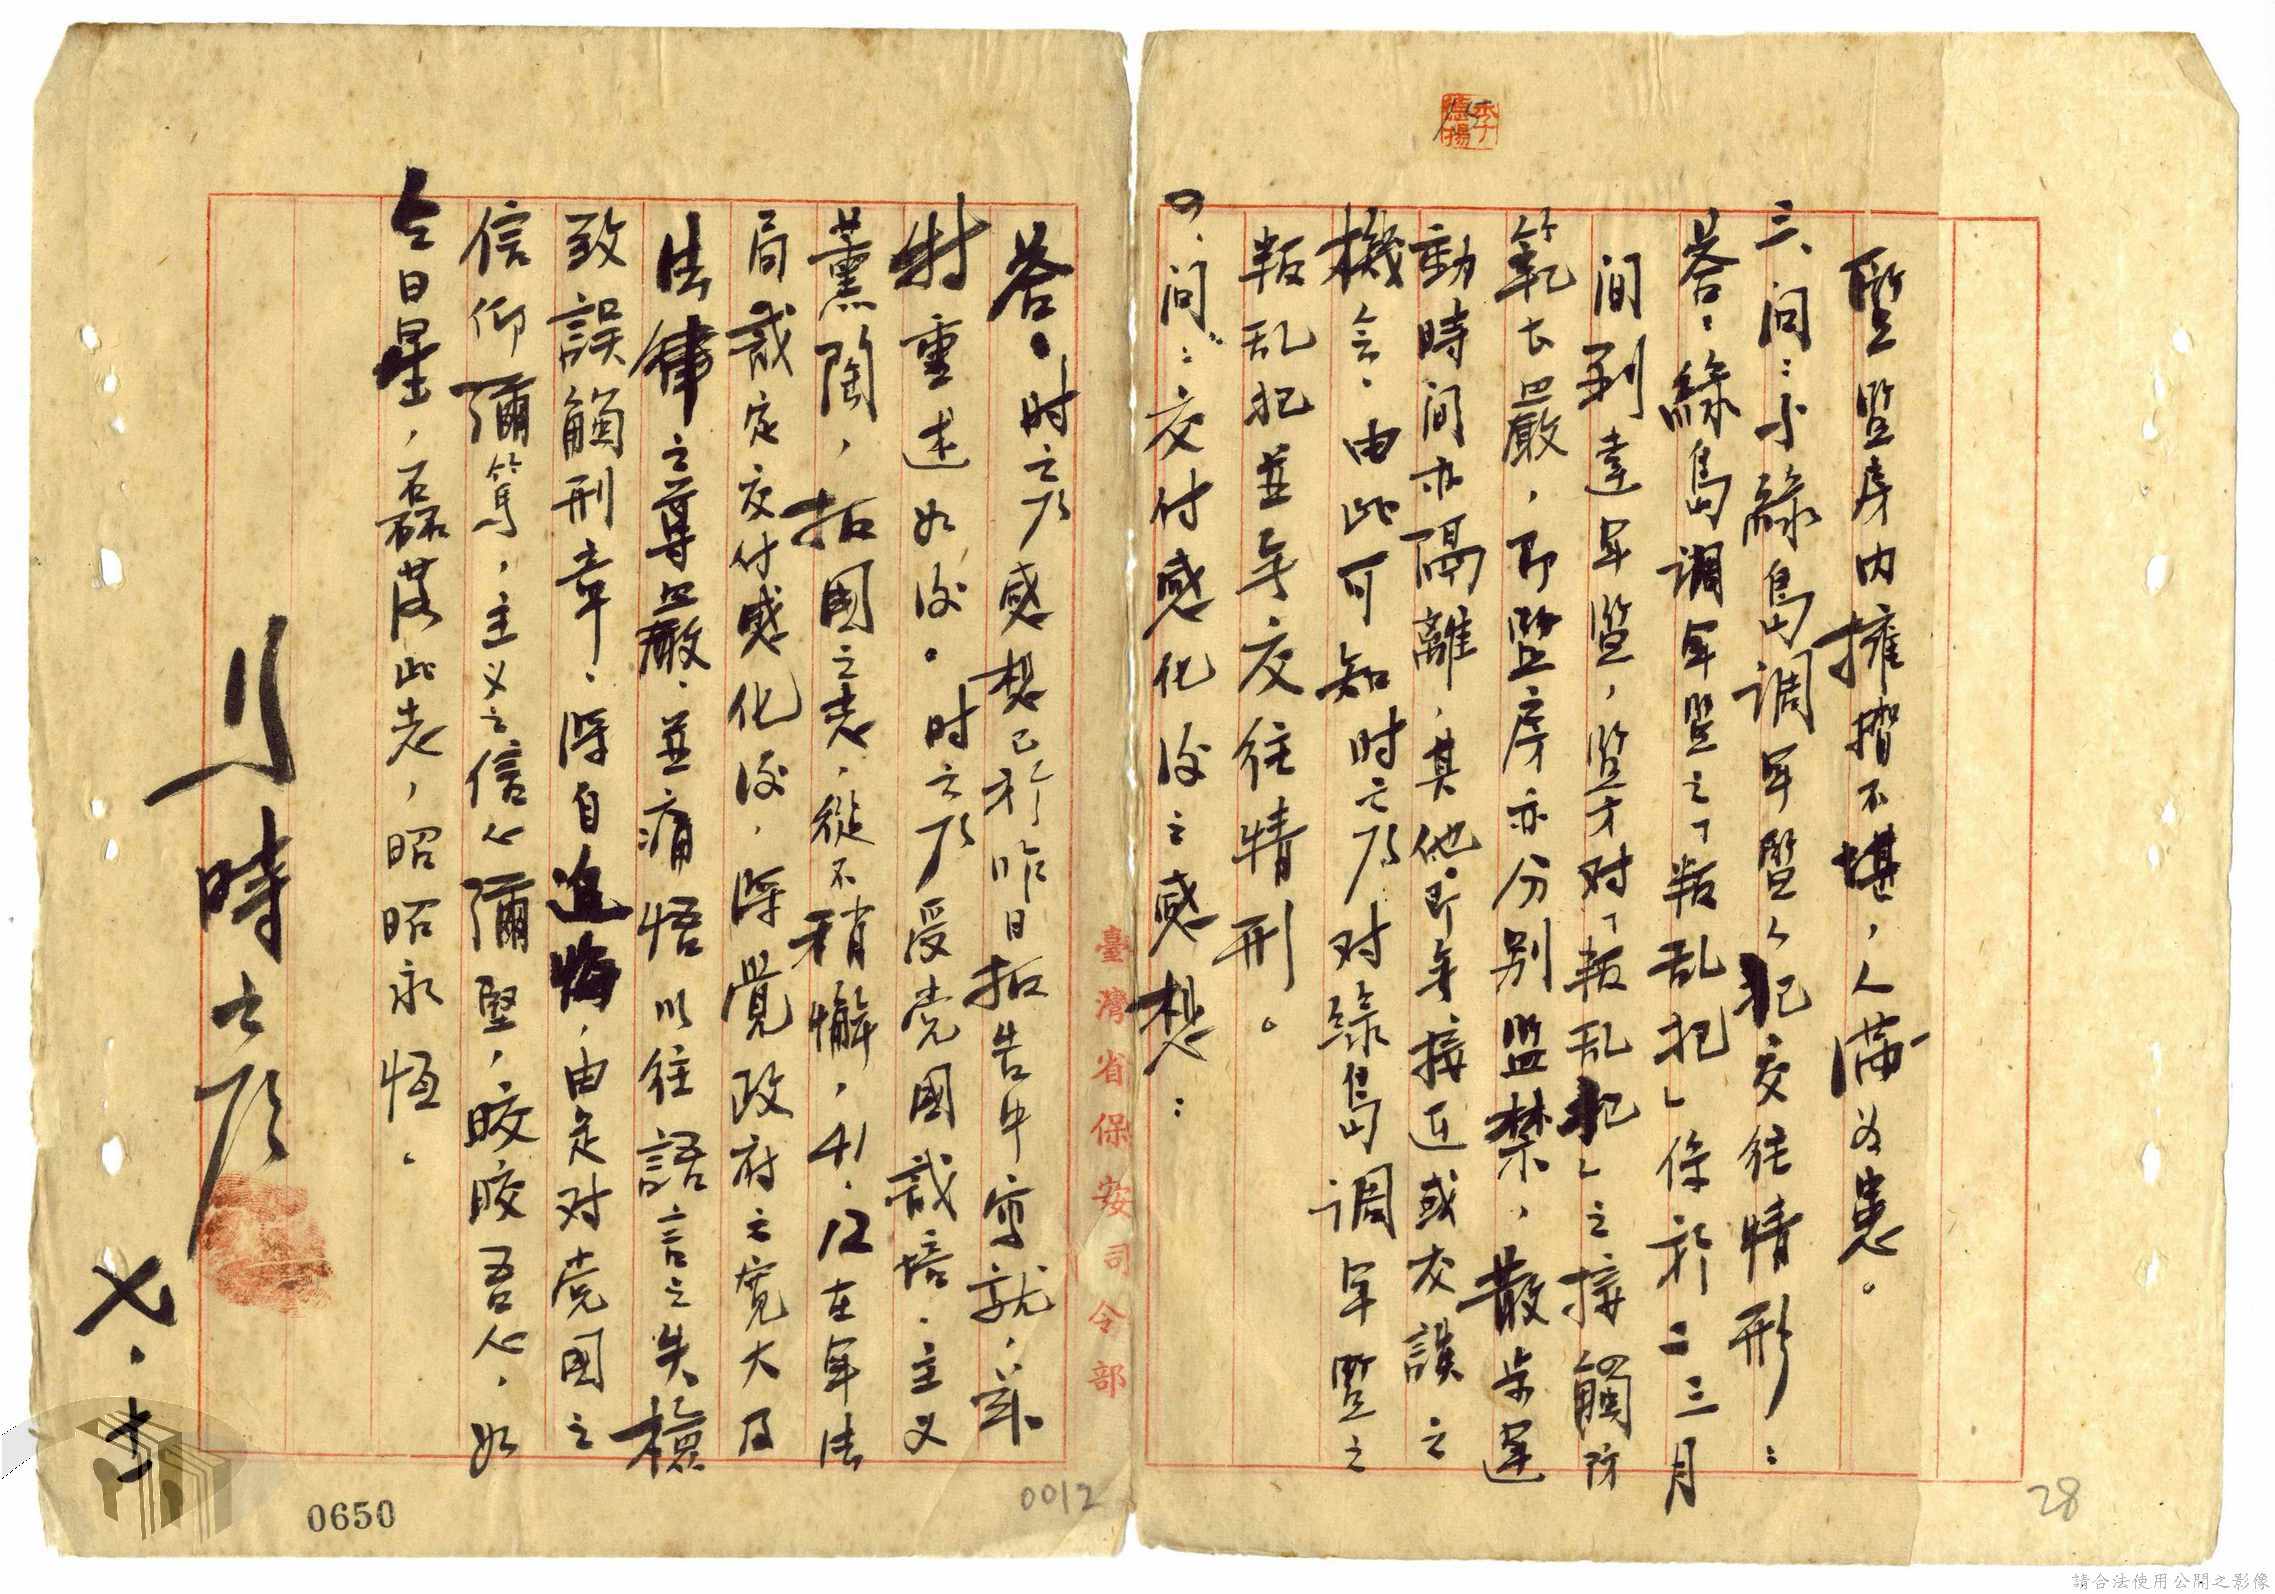 暨監房内擁擠不堪，人滿為患。
三、問：小綠島調軍監「犯交往情形：
答：綠島調軍監之「叛乱犯」係於二三月
間到達軍監，監方对「叛乱犯」之接觸防
範甚嚴，即監房亦分别监禁，散步運
動時间亦隔離，其他即無接近或交談之
機会，由此可知时之乃对綠島调軍監之
叛乱犯並無交往情刑。
四、问：交付感化後之感想：
答：时之乃感想已於昨日报告中寫就，兹
特重述如後。时之乃受党國栽培，主义
薰陶，报國之志，從不稍懈，41.12在軍法
局裁定交付感化後，深覺政府之寬大及
法律之尊嚴，並痛悟以往語言之失檢
致誤觸刑章，深自追悔，由是对党國之
信仰彌篤，主义之信心彌堅，皎皎吾心，如
今日星，磊落此志，昭昭永恆。
時之乃
七．
臺灣省保安司令部
0650
0012
28
請合法使用公開之影像